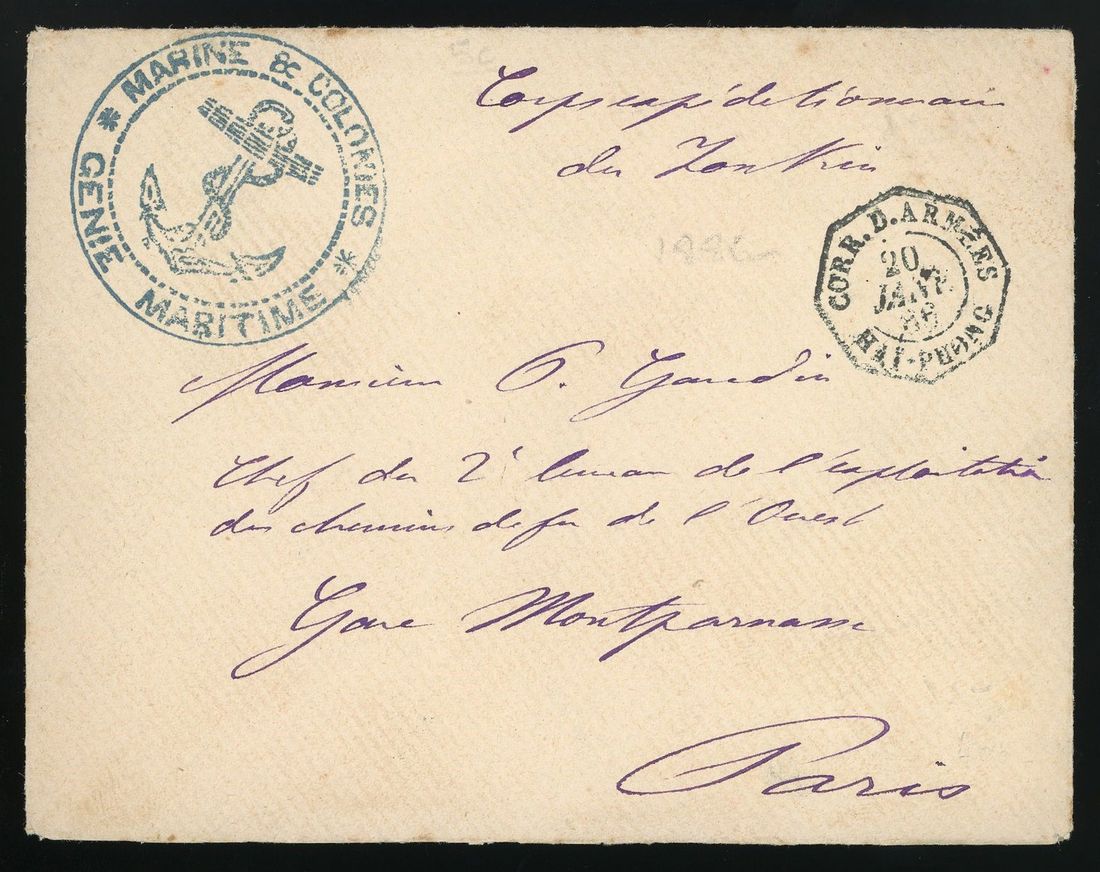 MARINE & COLONIES
* GENIE MARITIME *
Corps expéditionnaire
du Tonkin
CORR. D. ARMÉES
20
JANV
86
HAI-PHONG
1886
Monsieur Gaudin
Chef du 2e bureau de l'exploitation
des chemins de fer de l'Ouest
Gare Montparnasse
Paris